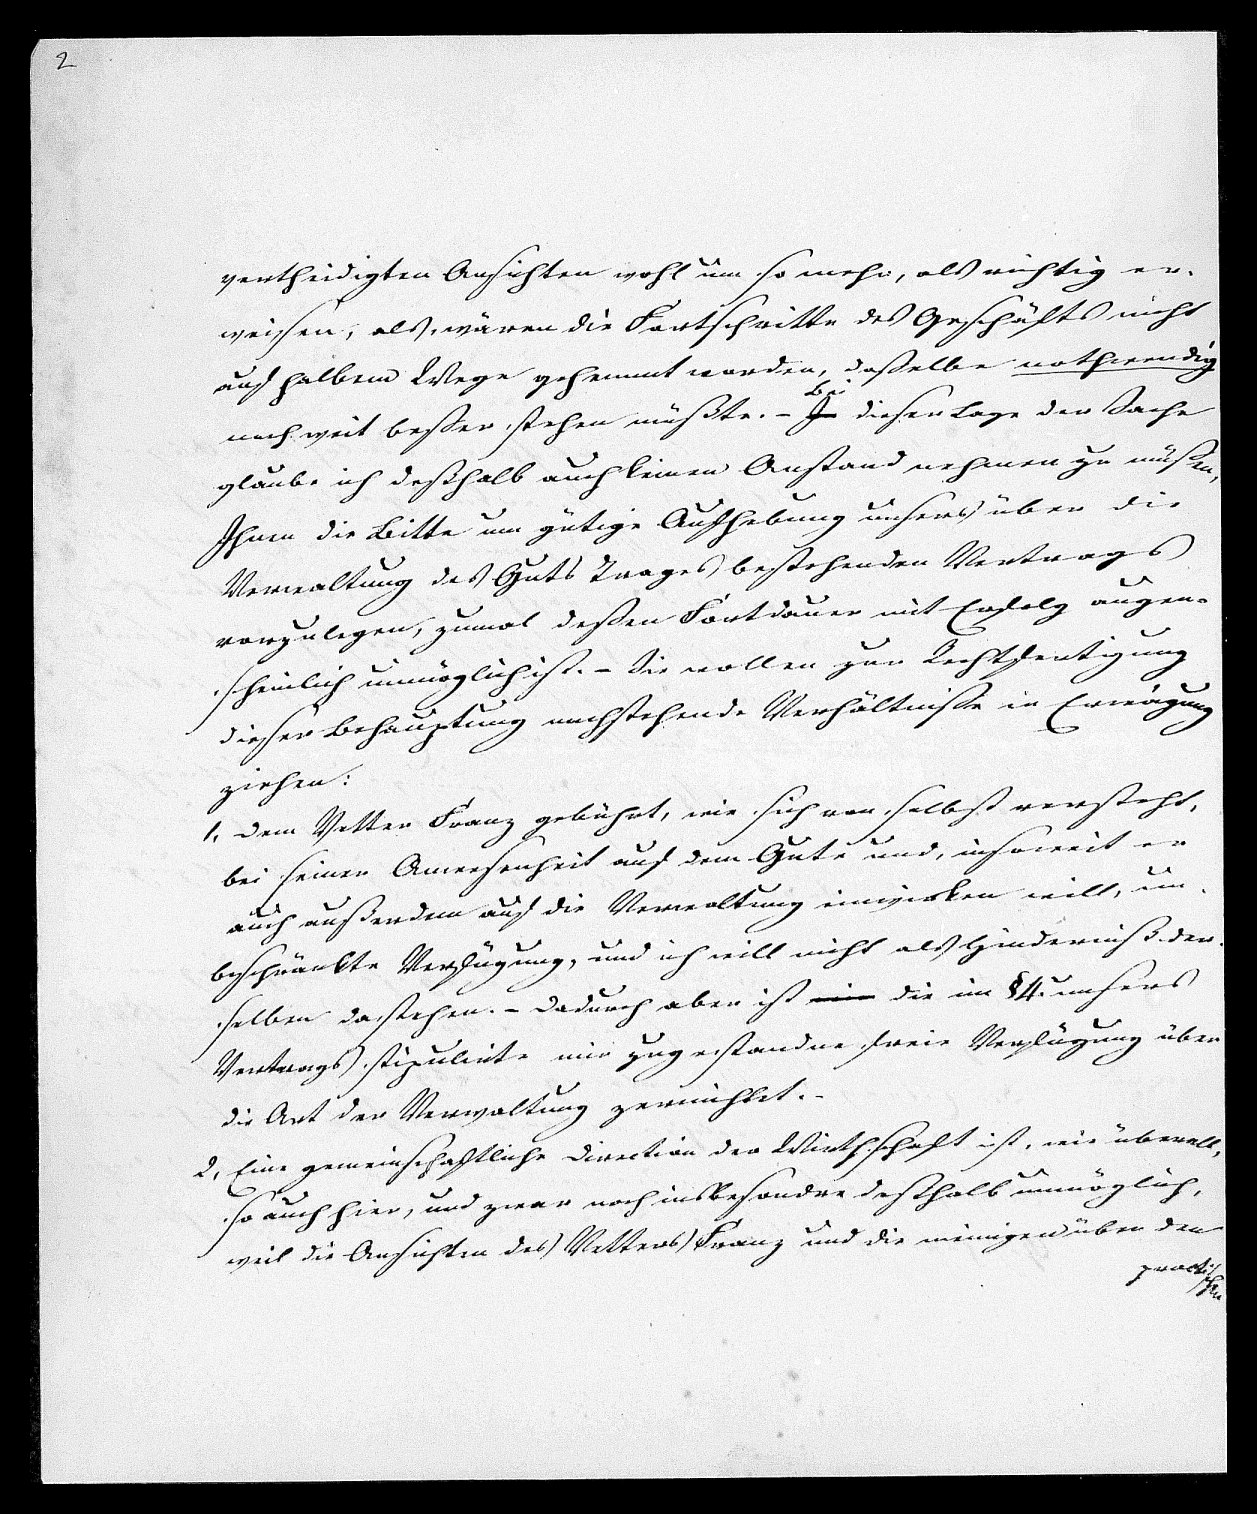 2
vertheidigten Ansichten wohl um so mehr, als richtig er-
weisen, als, wären die Fortschritte des Geschäfts nicht
auf halbem Wege gehemmt worden, dasselbe nothwendig
noch weit besser stehen müßte. – Bei dieser Lage der Sache
glaube ich deßhalb auch keinen Anstand nehmen zu müßen,
Ihnen die Bitte um gütige Aufhebung unsers über die
Verwaltung des Guts Trages bestehenden Vertrags
vorzulegen, zumal deßen Fortdauer mit Erfolg augen-
scheinlich unmöglich ist. – Sie wollen zur Rechtfertigung
dieser Behauptung nachstehende Verhältniße in Erwägung
ziehen:
1, Dem Vetter Franz gebührt, wie sich von selbst versteht,
bei seiner Anwesenheit auf dem Gute und, insoweit er
auch außerdem auf die Verwaltung einwirken will, un-
beschränkte Verfügung, und ich will nicht als Hinderniß der-
selben dastehen. – Dadurch aber ist die im §4. unsers
Vertrags stipulirte mir zugestandne freie Verfügung über
die Art der Verwaltung zernichtet. –
2, Eine gemeinschaftliche Direction der Wirthschaft ist, wie überall,
so auch hier, und zwar noch insbesondre deßhalb unmöglich,
weil die Ansichten des Vetters Franz und die meinigen über den
practischen